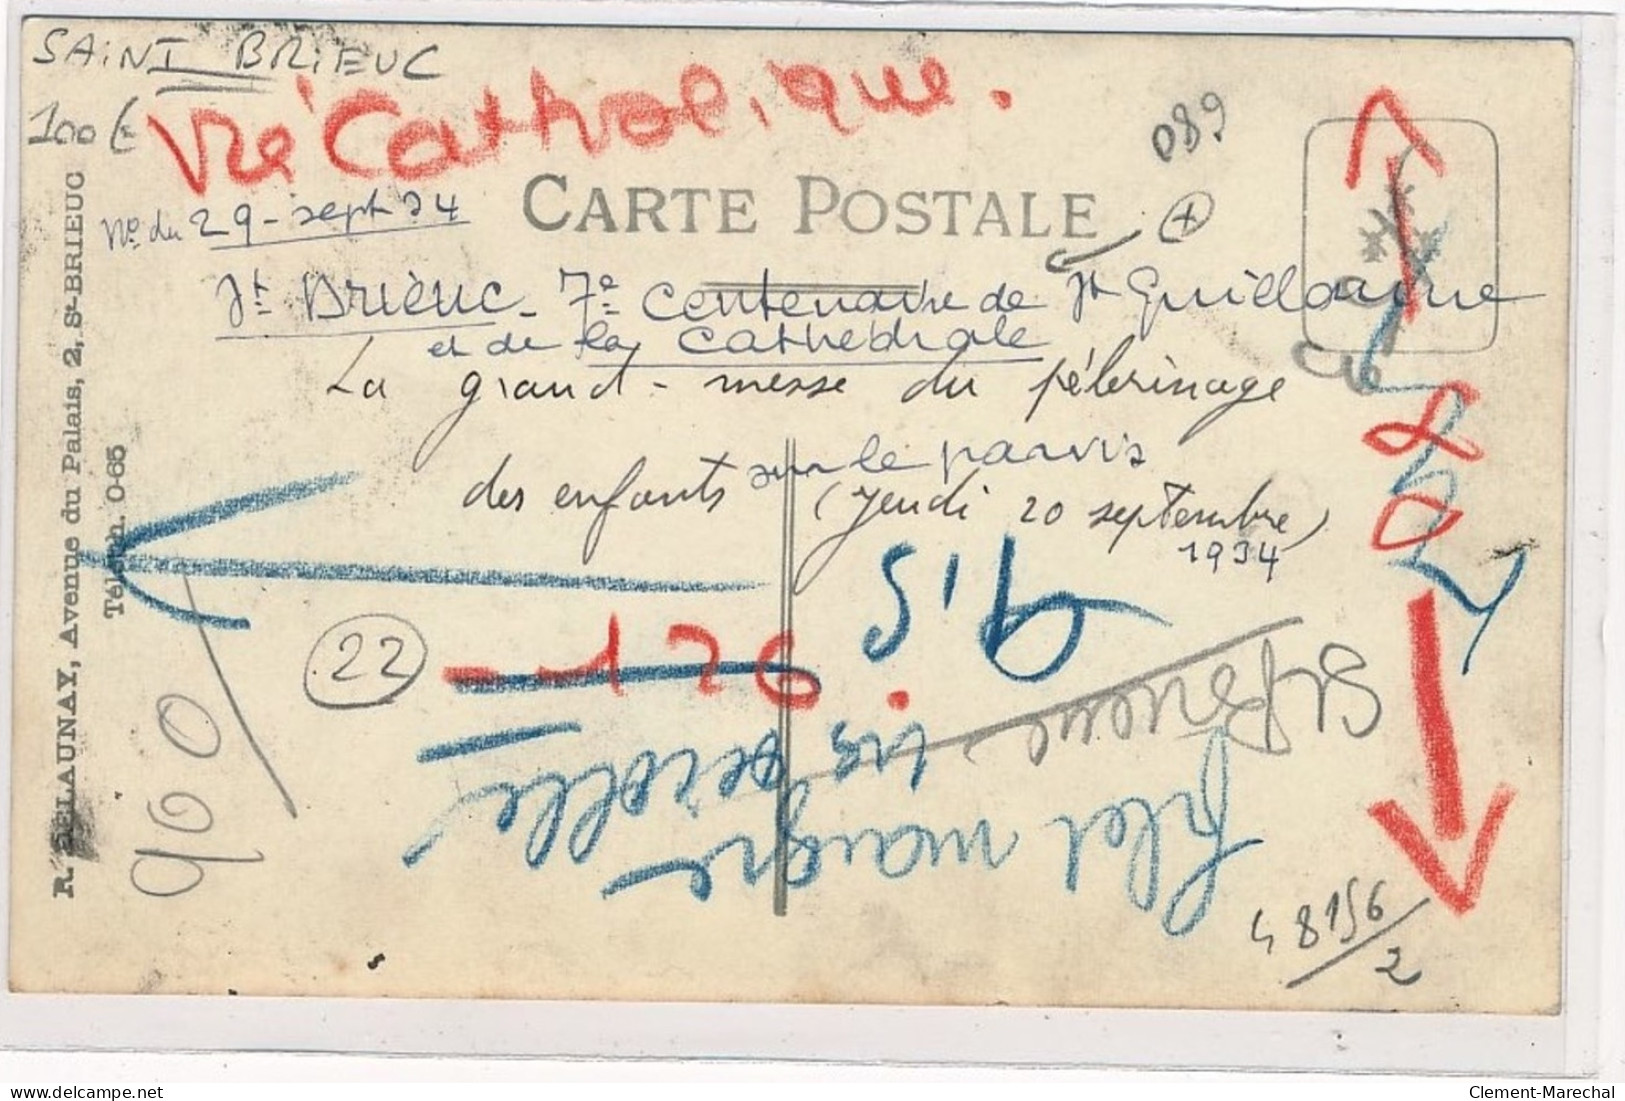 SAINT BRIEUC
100 €
Vie Catholique.
089
CARTE POSTALE
No du 29 - sept 34
St Brieuc - 7e centenaire de St Guillaume
et de la cathédrale
La grand - messe du pélerinage
des enfants sur le parvis
(jeudi 20 septembre)
1934
R. DELAUNAY, Avenue du Palais, 2, St-BRIEUC
Téléph. 0-65
9.5
22
- 126.
St Brieuc
filet maigre
900
48156/2
delcampe.net
Clement-Marechal